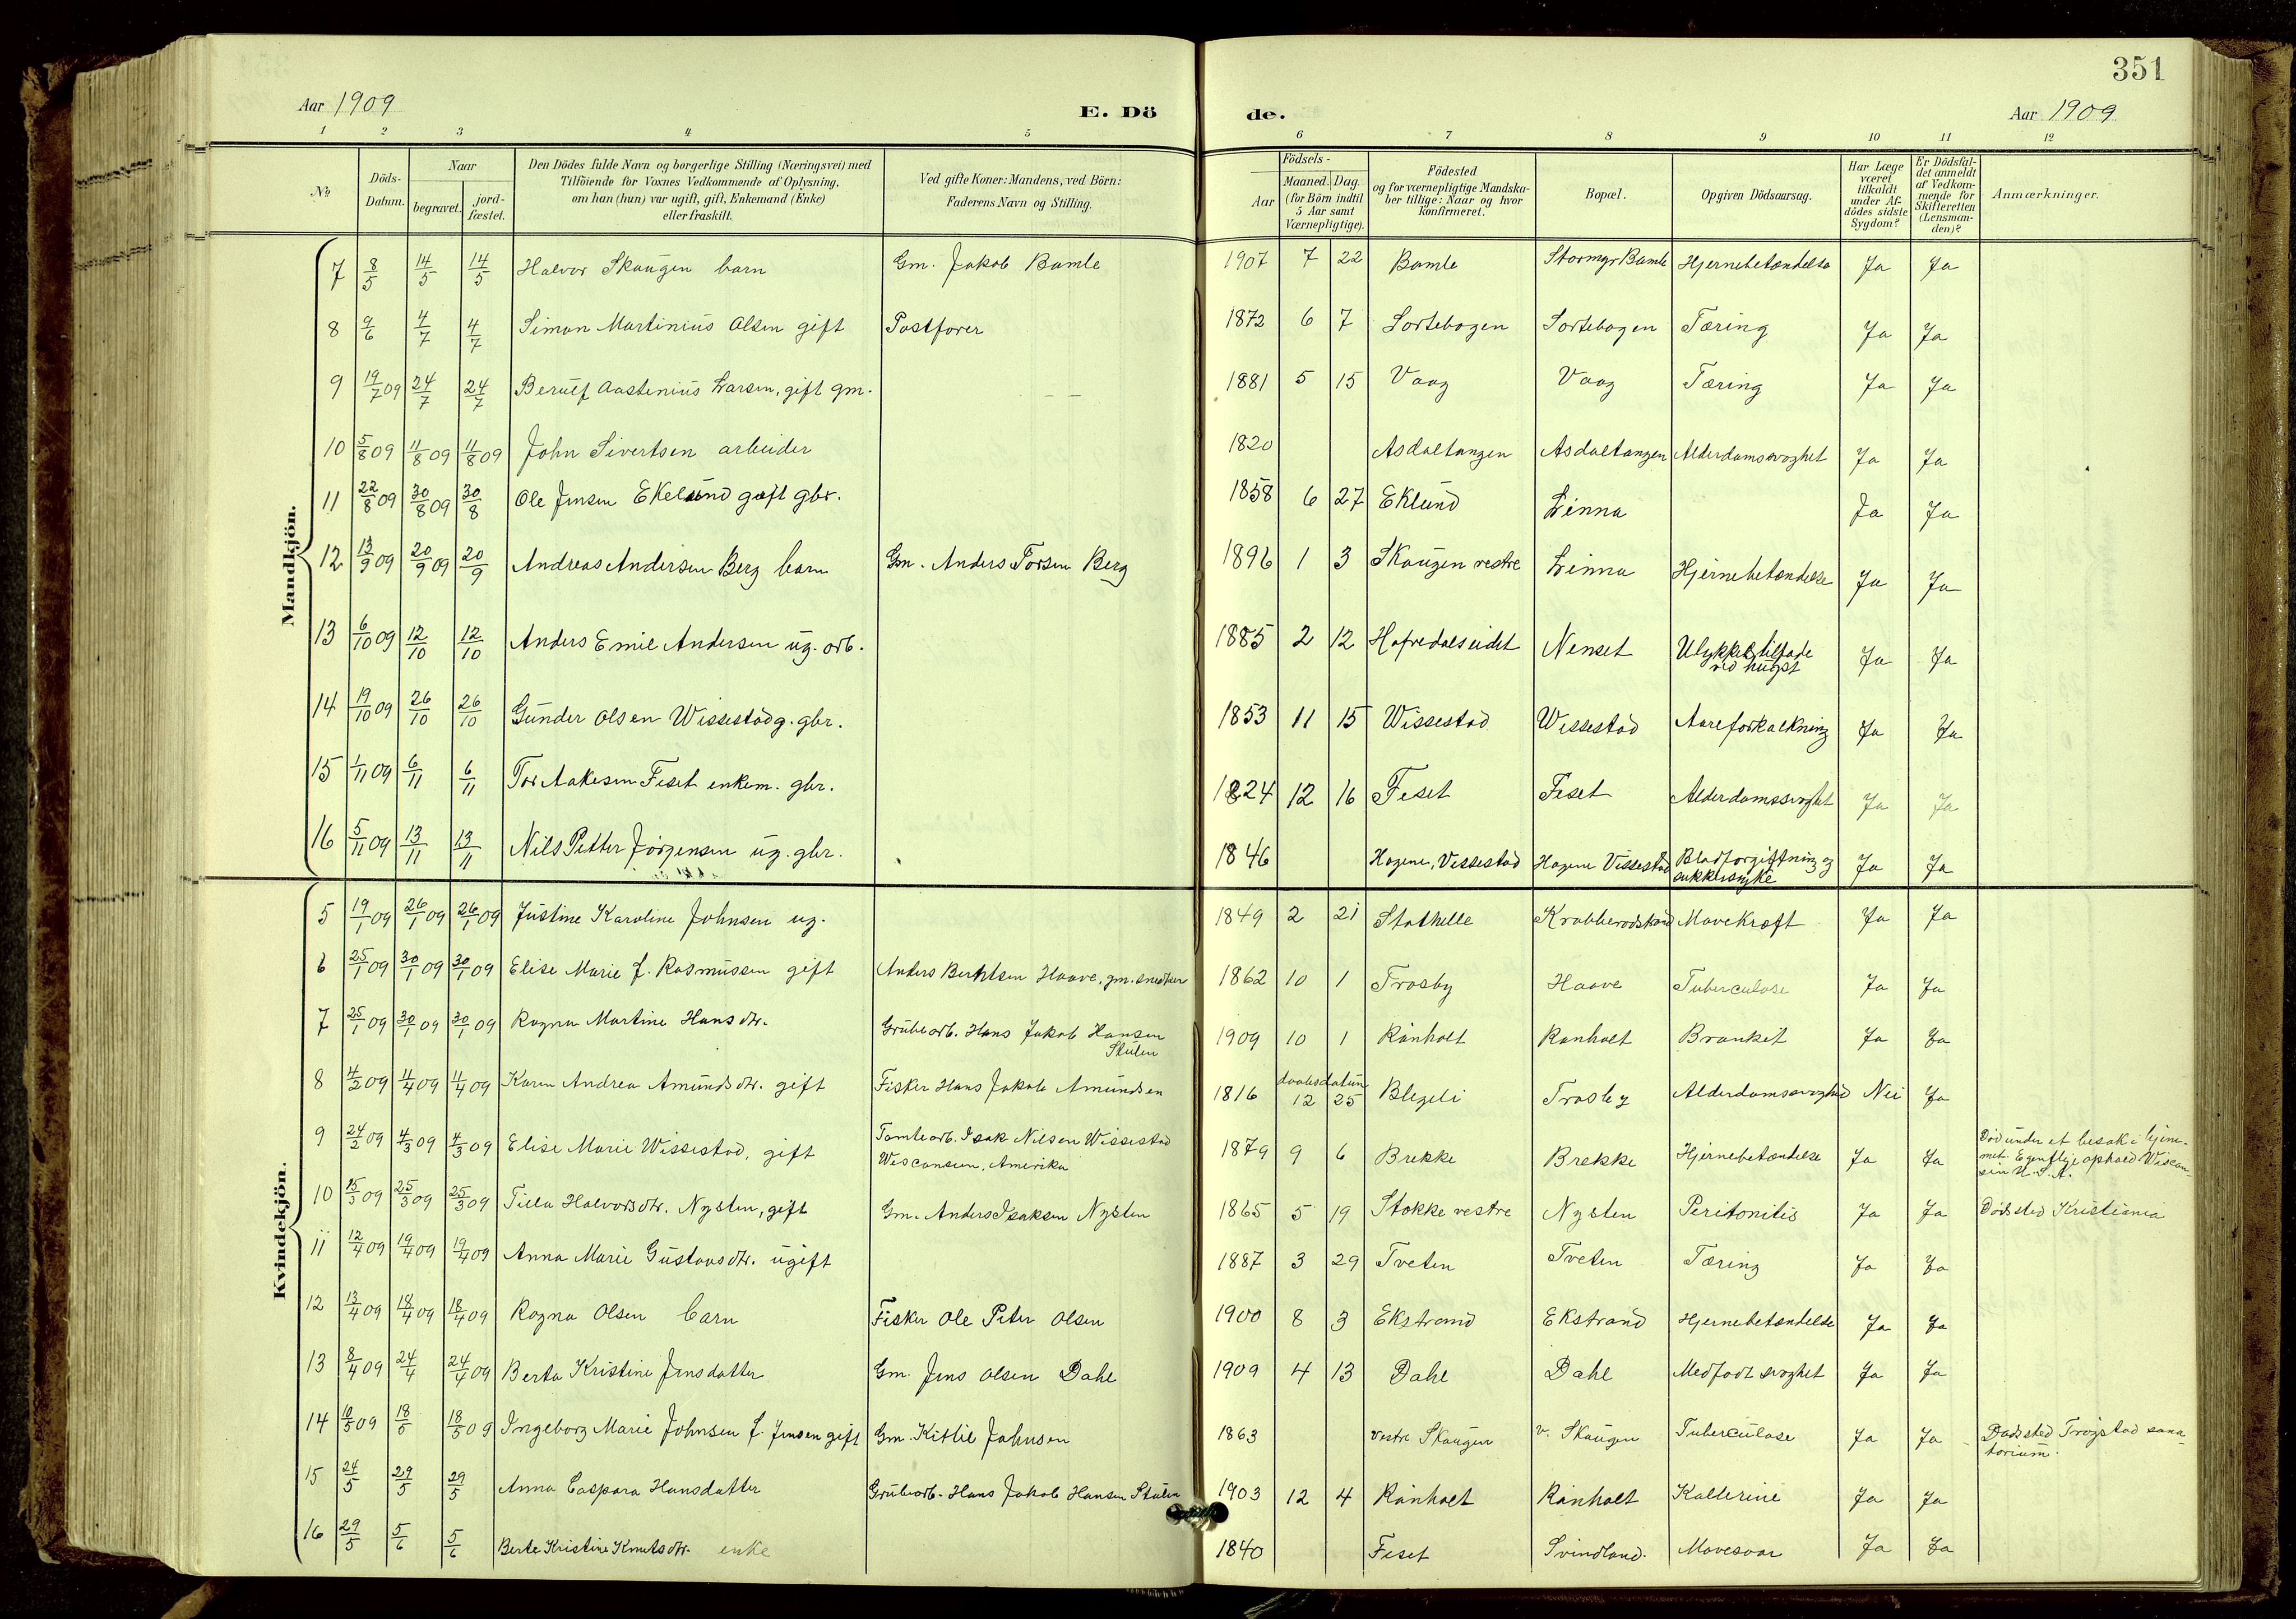 351
Aar 1909 E. Dö de. Aar 1909
1 2 3 4 5 6 7 8 9 10 11 12
No
Döds-
Datum.
Naar
begravet.
jord-
fæstet.
Den Dödes fulde Navn og borgerlige Stilling (Næringsvei) med
Tilföiende for Voxnes Vedkommende af Oplysning,
om han (hun) var ugift, gift, Enkemand (Enke)
eller fraskilt.
Ved gifte Koner: Mandens, ved Börn:
Faderens Navn og Stilling.
Födsels-
Aar
Maaned. Dag
(for Börn indtil
5 Aar samt
Værnepligtige).
Födested
og for værnepligtige Mandska-
ber tillige: Naar og hvor
konfirmeret.
Bopæl.
Opgiven Dödsaarsag.
Har Læge
været
tilkaldt
under Af-
dödes sidste
Sygdom?
Er Dödsfal-
det anmeldt
af Vedkom-
mende for
Skifteretten
(Lensman-
den)?
Anmærkninger.
Mandkjön.
7 8/5 14/5 14/5 Halvor Skaugen barn Gm. Jakob Bamle 1907 7 22 Bamle Stormyr Bamle Hjernebetændelse Ja Ja
8 9/6 4/7 4/7 Simon Martinius Olsen gift Postfører 1872 6 7 Sortebogen Sortebogen Tæring Ja Ja
9 19/7 09 24/7 24/7 Berulf Aastenius Larsen, gift gm. — — 1881 5 15 Vaag Vaag Tæring Ja Ja
10 5/8 09 11/8 09 11/8 09 John Sivertsen arbeider 1820 Asdaltangen Asdaltangen Alderdomssvaghet Ja Ja
11 22/8 09 30/8 09 30/8 Ole Jensen Ekelund gift gbr. 1858 6 27 Eklund Linna Ja Ja
12 13/9 09 20/9 09 20/9 Andreas Andersen Berg barn Gm. Anders Torsen Berg 1896 1 3 Skaugen vestre Linna Hjernebetændelse Ja Ja
13 6/10 09 12/10 12/10 Anders Emil Andersen ug. arb. 1885 2 12 Hafredalseidet Nenset Ulykkestilfæde
ved hugst Ja Ja
14 19/10 09 26/10 26/10 Gunder Olsen Wissestad g. gbr. 1853 11 15 Wissestad Wissestad Aareforkalkning Ja Ja
15 1/11 09 6/11 6/11 Tor Aakesen Feset enkem. gbr. 1824 12 16 Feset Feset Alderdomssvaghet Ja Ja
16 5/11 09 13/11 13/11 Nils Petter Jörgensen ug. gbr. 1846 Hagene, Vissestad Hagene Vissestad Blodforgiftning og
sukkersyke Ja Ja
Kvindekjön.
5 19/1 09 26/1 09 26/1 09 Justine Karoline Johnsen ug. 1849 2 21 Stathelle Mavekræft Ja Ja
6 25/1 09 30/1 09 30/1 09 Elise Marie f. Rasmussen gift Anders Berntsen Haave, gm. snedker 1862 10 1 Trosby Haave Tuberculose Ja Ja
7 25/1 09 30/1 09 30/1 09 Ragna Martine Hansdtr. Grubearb. Hans Jakob Hansen
Stulen 1909 10 1 Rånholt Rånholt Bronkit Ja Ja
8 4/2 09 11/4 09 11/4 09 Karen Andrea Amundsdtr. gift Fisker Hans Jakob Amundsen 1816 daabsdatum
12 25 Blegeli Trosby Alderdomssvaghed Nei Ja
9 24/2 09 4/3 09 4/3 09 Elise Marie Wissestad, gift Tomtearb. Isak Nilsen Wissestad
Wisconsin, Amerika 1879 9 6 Brekke Brekke Hjernebetændelse Ja Ja Död under et besøk i hjem-
met. Egentlige ophold Wiscon-
sin U.S.A.
10 15/3 09 25/3 09 25/3 09 Tilla Halvorsdtr. Nysten, gift Gm. Anders Isaksen Nysten 1865 5 19 Stokke vestre Nysten Peritonitis Ja Ja Dödssted Kristiania
11 12/4 09 19/4 09 19/4 09 Anna Marie Gustavsdtr. ugift 1887 3 29 Tveten Tveten Tæring Ja Ja
12 13/4 09 18/4 09 18/4 09 Ragna Olsen barn Fisker Ole Peter Olsen 1900 8 3 Ekstrand Ekstrand Hjernebetændelse Ja Ja
13 8/4 09 24/4 24/4 09 Berta Kristine Jensdatter Gm. Jens Olsen Dahl 1909 4 13 Dahl Dahl Medfødt svaghet Ja Ja
14 10/5 09 18/5 18/5 09 Ingeborg Marie Johnsen f. Jensen gift Gm. Kittil Johnsen 1863 vestre Skaugen v. Skaugen Tuberculose Ja Ja Dødssted Trøgstad sana-
torium.
15 24/5 29/5 29/5 Anna Caspara Hansdatter Grubearb. Hans Jakob Hansen Stulen 1903 12 4 Rånholt Rånholt Kallerine Ja Ja
16 29/5 5/6 5/6 Berte Kristine Knutsdtr. enke 1840 Feset Svindland. Mavesaar Ja Ja